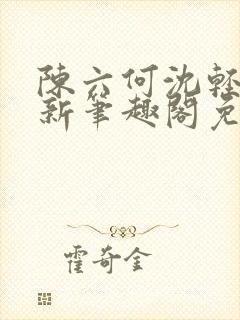 陳六何沈輕
新筆趣閣免
霍奇金